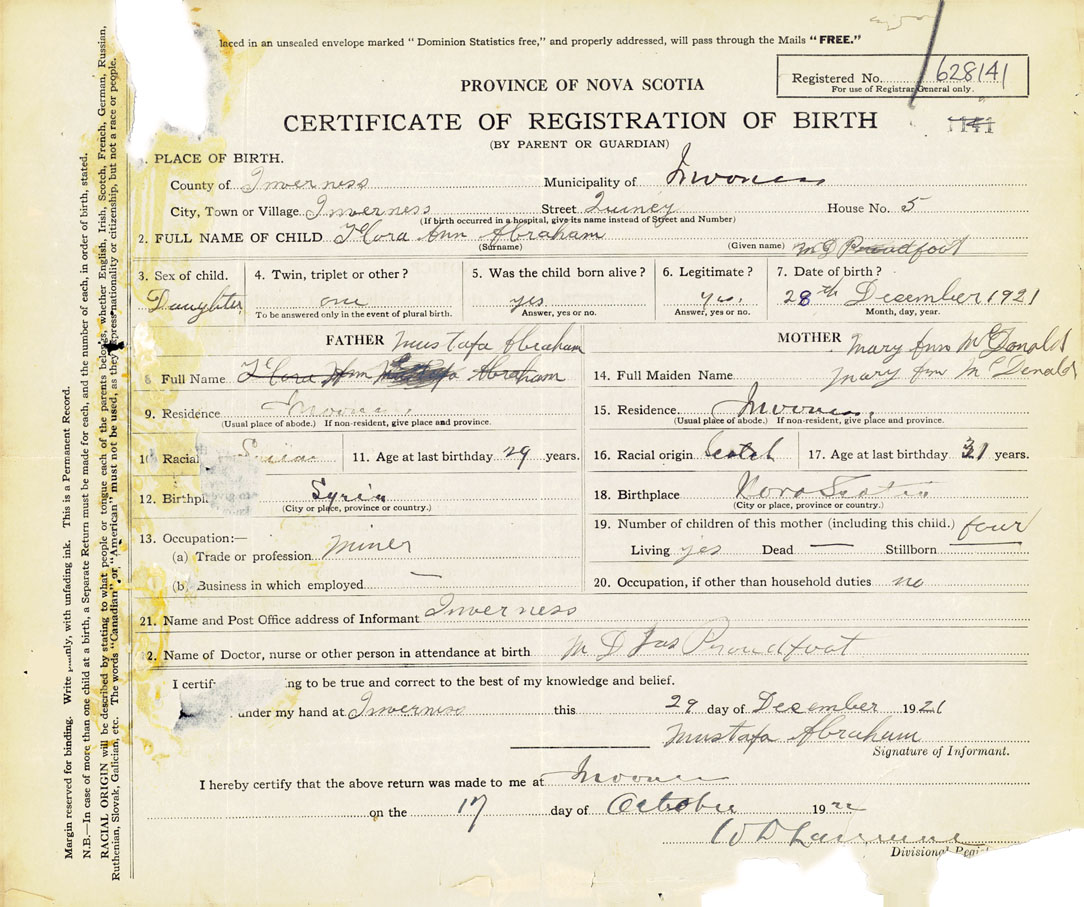 laced in an unsealed envelope marked "Dominion Statistics free," and properly addressed, will pass through the Mails "FREE."
PROVINCE OF NOVA SCOTIA
Registered No. 628141
For use of Registrar General only.
CERTIFICATE OF REGISTRATION OF BIRTH
1141
(BY PARENT OR GUARDIAN)
1. PLACE OF BIRTH.
County of Inverness Municipality of Inverness
City, Town or Village Inverness Street Quincy House No. 5
(If birth occurred in a hospital, give its name instead of Street and Number)
2. FULL NAME OF CHILD Flora Ann Abraham M D Proudfoot
(Surname) (Given name)
3. Sex of child. 4. Twin, triplet or other? 5. Was the child born alive? 6. Legitimate? 7. Date of birth?
Daughter one yes yes. 28th Desember 1921
To be answered only in the event of plural birth. Answer, yes or no. Answer, yes or no. Month, day, year.
FATHER Mustafa Abraham
8 Full Name Flora Ann Mustafa Abraham
9. Residence Inverness.
(Usual place of abode.) If non-resident, give place and province.
10 Racial Syrian 11. Age at last birthday 29 years.
12. Birthpl Syria
(City or place, province or country.)
13. Occupation:—
(a) Trade or profession miner
(b) Business in which employed —
MOTHER Mary Ann McDonald
14. Full Maiden Name Mary Ann McDonald
15. Residence. Inverness.
(Usual place of abode.) If non-resident, give place and province.
16. Racial origin Scotch 17. Age at last birthday 31 years.
18. Birthplace Nova Scotia
(City or place, province or country.)
19. Number of children of this mother (including this child.) four
Living yes Dead — Stillborn
20. Occupation, if other than household duties no
21. Name and Post Office address of Informant Inverness
12. Name of Doctor, nurse or other person in attendance at birth M D Jas Proudfoot
I certif ng to be true and correct to the best of my knowledge and belief.
under my hand at Inverness this 29 day of Desember 1921
Mustafa Abraham
Signature of Informant.
I hereby certify that the above return was made to me at Inverness
on the 17 day of October 1922
W D Lawrence
Divisional Regist
Margin reserved for binding. Write plainly, with unfading ink. This is a Permanent Record.
N.B.—In case of more than one child at a birth, a Separate Return must be made for each, and the number of each, in order of birth, stated.
RACIAL ORIGIN will be described by stating to what people or tongue each of the parents belongs, whether English, Irish, Scotch, French, German, Russian,
Ruthenian, Slovak, Galician, etc. The words "Canadian" or "American" must not be used, as they express nationality or citizenship, but not a race or people.